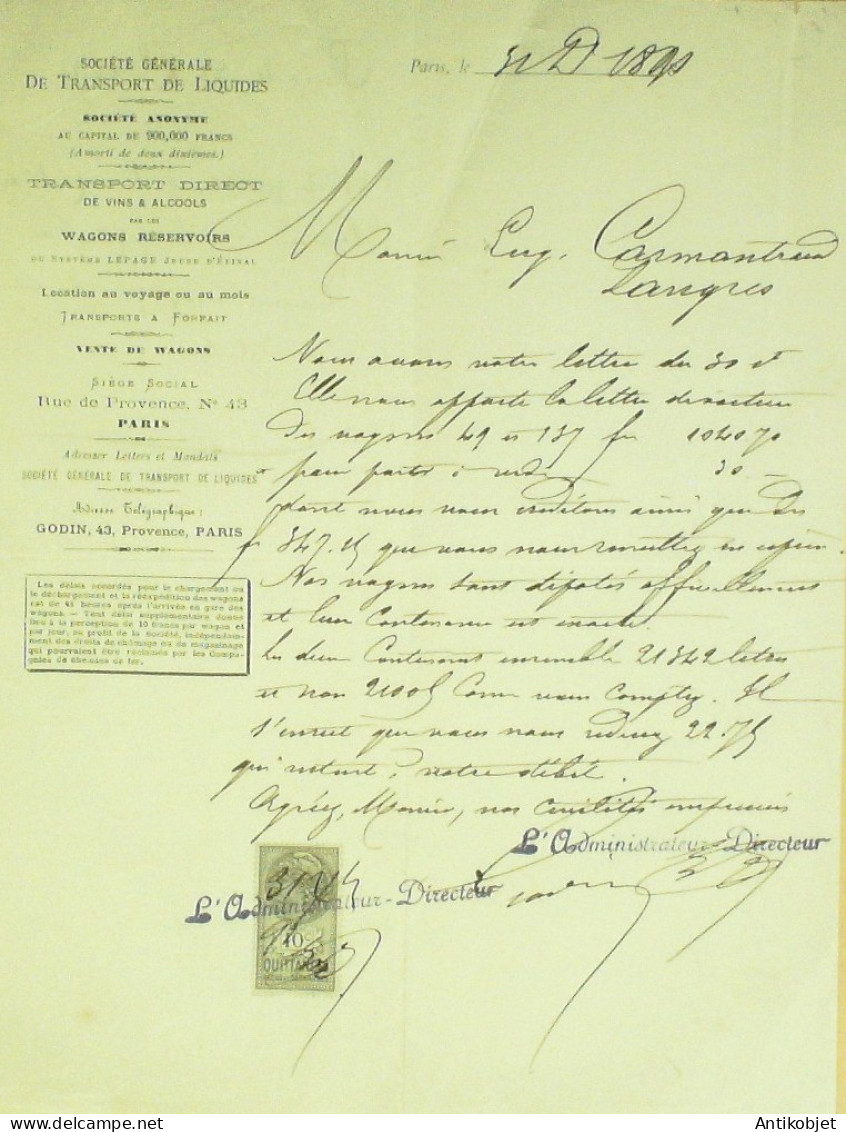 SOCIÉTÉ GÉNÉRALE
DE TRANSPORT DE LIQUIDES
SOCIÉTÉ ANONYME
AU CAPITAL DE 900,000 FRANCS
(Amorti de deux dixièmes.)
TRANSPORT DIRECT
DE VINS & ALCOOLS
PAR LES
WAGONS RÉSERVOIRS
DU SYSTÈME LEPAGE JEUNE D'ÉPINAL
Location au voyage ou au mois
TRANSPORTS A FORFAIT
VENTE DE WAGONS
SIÈGE SOCIAL
Rue de Provence, No 43
PARIS
Adresser Lettres et Mandats
SOCIÉTÉ GÉNÉRALE DE TRANSPORT DE LIQUIDES
Adresse Télégraphique:
GODIN, 43, Provence, PARIS
Les délais accordés pour le chargement ou
le déchargement et la réexpédition des wagons
est de 48 heures après l'arrivée en gare des
wagons. — Tout délai supplémentaire donne
lieu à la perception de 10 francs par wagon et
par jour, au profit de la Société, indépendam-
ment des droits de chômage ou de magasinage
qui pourraient être réclamés par les Compa-
gnies de chemins de fer.
Paris, le 31 Dbre
Monsieur Eug. Carmantrand
Langres
Nous avons votre lettre du 30 ct
Elle nous apporte la lettre de voiture
des wagons 49 et 137 fr 1040 70
30 —
dont nous vous créditons ainsi que des
fr 347.15 que vous nous remettez en espèces
Nos wagons sont dépotés officiellement
et leur contenance est exacte.
Les deux contenant ensemble 21342 litres
et non 21005 comme vous comptez. Il
s'ensuit que vous nous redevez 22.75
qui restent à notre débit.
Agréez, Monsieur, nos civilités empressées
L'Administrateur-Directeur
L'Administrateur-Directeur
10c
QUITTANCES
AntikObjet